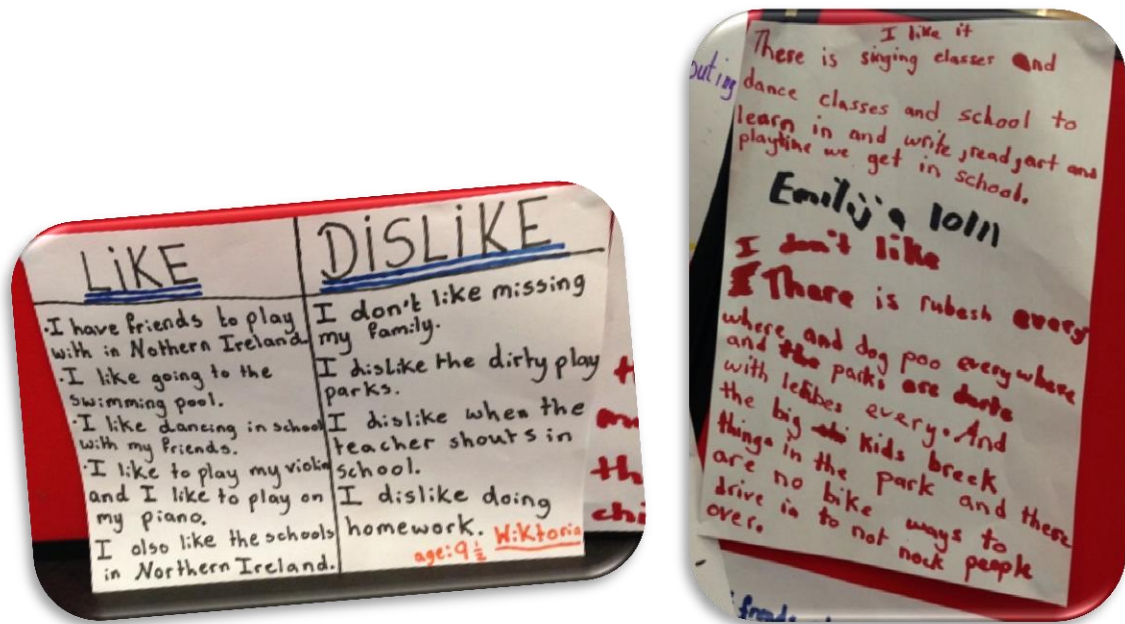 LIKE
·I have friends to play
with in Nothern Ireland
·I like going to the
swimming pool.
·I like dancing in school
with my friends.
·I like to play my violin
and I like to play on
my piano.
I also like the schools
in Northern Ireland.
DISLIKE
I don't like missing
my family.
I dislike the dirty play
parks.
I dislike when the
teacher shouts in
school.
I dislike doing
homework. Wiktoria
age: 9 1/2
I like it
There is singing classes and
dance classes and school to
learn in and write, read, art and
playtime we get in school.
Emily
I don't like
There is rubesh every
where and dog poo everywhere
and the parks are
with every. And
the big kids breek
things in the park and there
are no bike ways to
drive in to not nock people
over.
outing